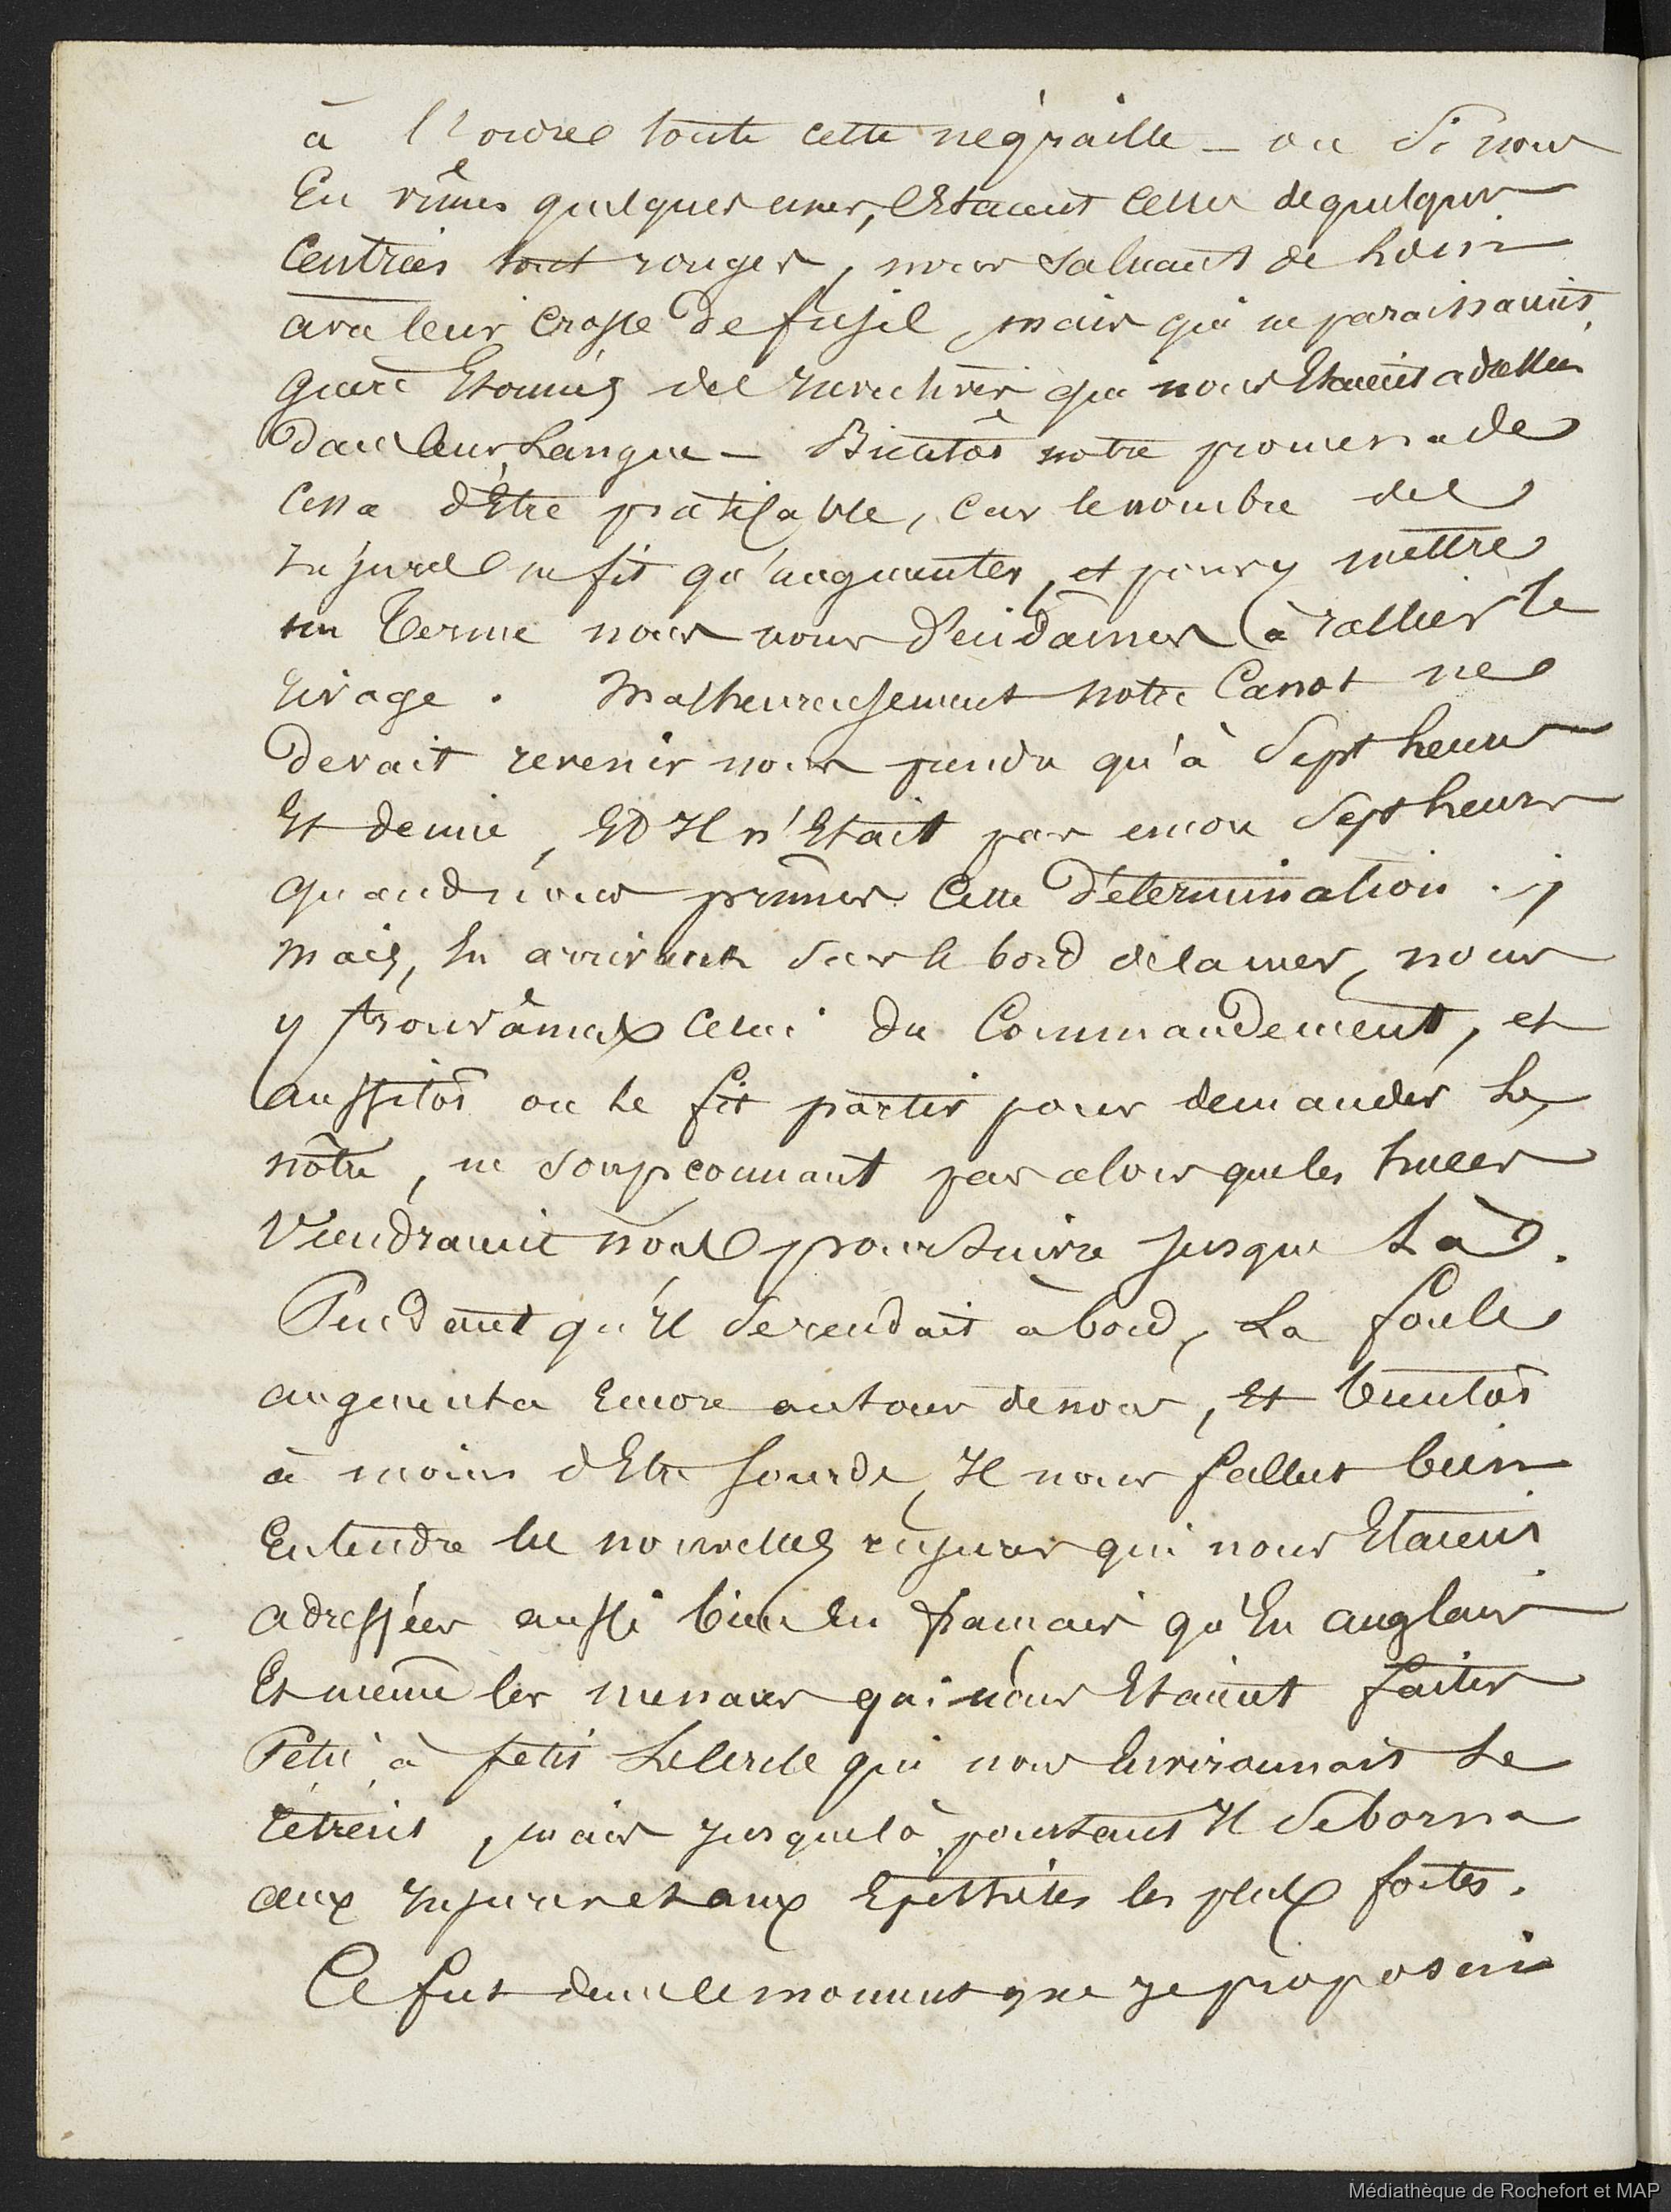 à l'ordre toute cette négraille _ ou si nous
En vîmes quelques unes, c'Etaient celles de quelques
Centries tout rouges, nous saluant de loin
avec leur crosse de fusil, mais qui ne paraissaient
guère Etonnés des qui nous Etaient adressées
Dans leur Langue _ Bientôt notre promenade
cessa d'Etre praticable, car le nombre des
injures ne fit qu'augmenter, et pour y mettre
un Terme nous nous décidâmes à rallier le
rivage. Malheureusement notre Canot ne
Devait revenir nous prendre qu'à Sept heures
Et demie, Et Il n'Etait pas encore Sept heures
quand nous prîmes cette Détermination.
Mais, En arrivant sur le bord de la mer, nous
y trouvâmes celui du Commandement, et
aussitôt on le fit partir pour demander Le
nôtre, ne soupçonnant pas alors que les huées
Viendraient nous poursuivre jusque Là.
Pendant qu'Il se rendait à bord, La foule
augmenta Encore autour de nous, Et bientôt
à moins d'Etre sourds, Il nous fallut bien
Entendre les nouvelles injures qui nous Etaient
adressées aussi bien En français qu'En anglais
Et même les menaces qui nous Etaient faites
Petit à petit Le Cercle qui nous Environnait se
rétrécit, mais jusque là pourtant Il se borna
aux Injures et aux Epithètes les plus fortes.
Ce fut dans le moment que je proposai
Médiathèque de Rochefort et MAP